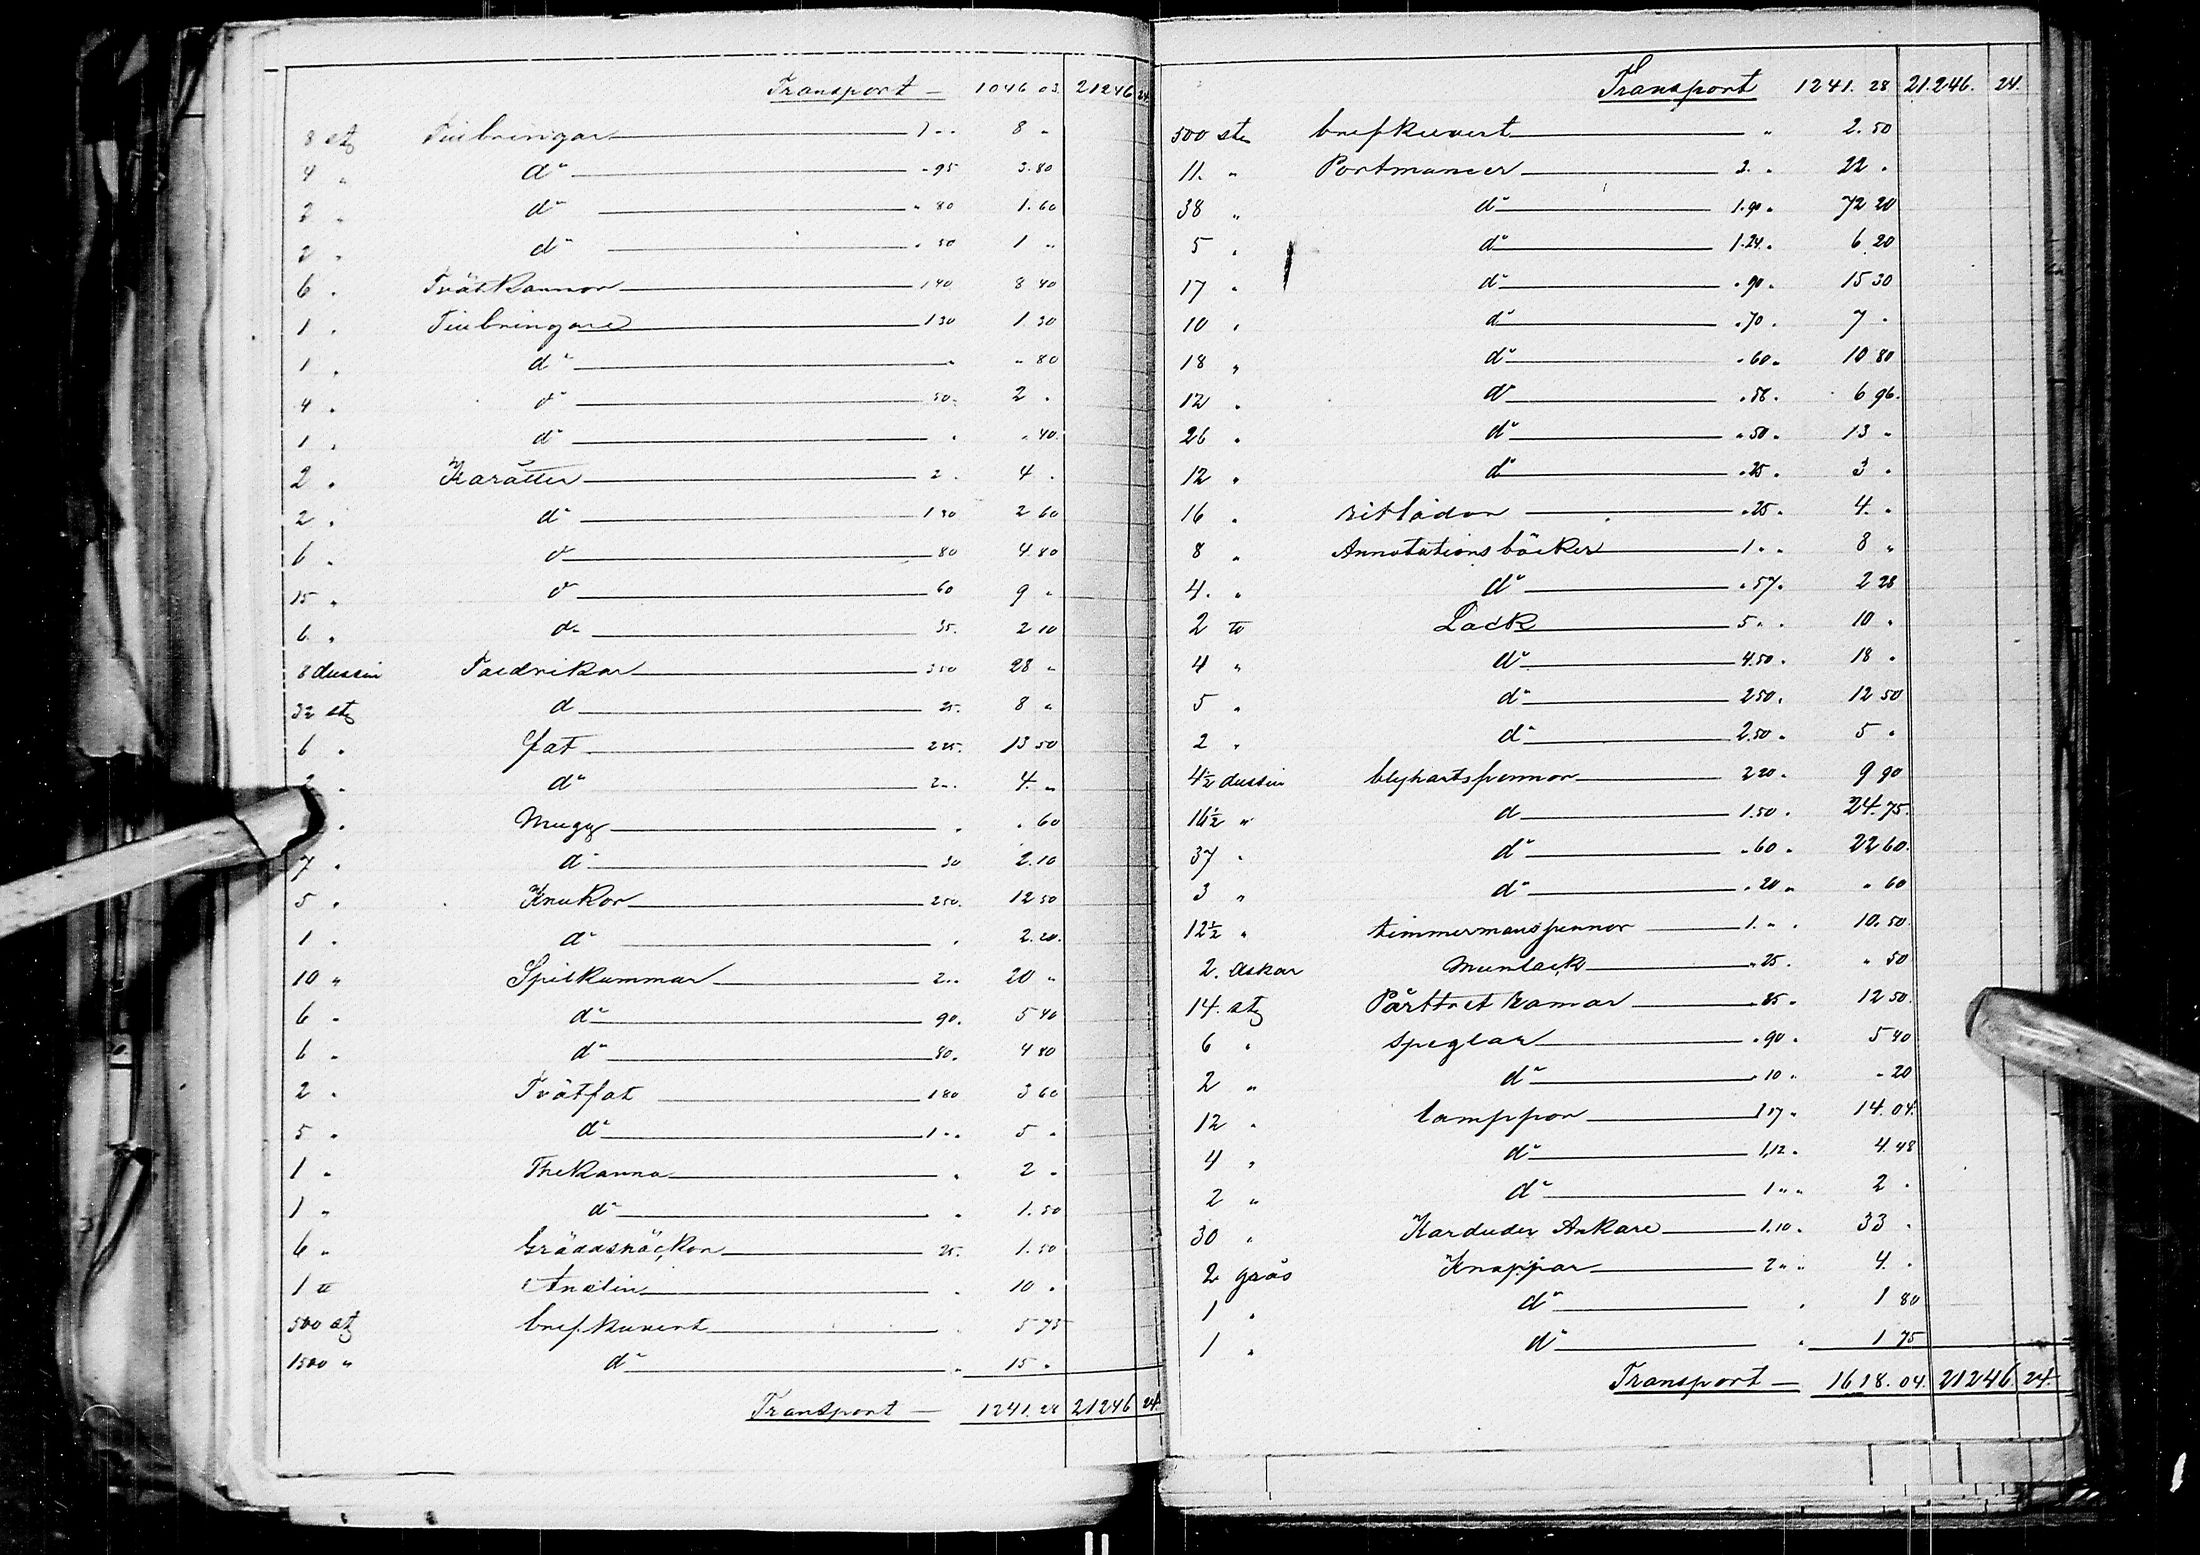 Transport — 1046 03. 21246 24
8 stz Tinbringar 1 " " 8 "
4 " do " 95 3.80
2 " do " 80 1.60
2 " do " 50 1 "
6 " Tvätkannor 140 8 40
1 " Tinbringare 130 1.30
1 " do " " 80
4 " do 50 2 "
1 " do " " 40
2 " Karåtter 2 " 4 "
2 " do 130 2 60
6 " do 80 4.80
15 " do 60 9 "
6 " do 35. 2 10
8 dussin Taldrikar 350 28 "
32 stz d 25. 8 "
6 " fat 225. 13 50
2 " do 2 " " 4. "
" Mugg " " 60
7 " do 30 2.10
5 " Krukor 250. 12 50
1 " do " 2.20.
10 " Spilkummar 2 " " 20 "
6 " do 90. 5 40
6 " do 80. 4 80
2 " Tvätfat 180 3 60
5 " do 1 " " 5 "
1 " Thekanna " 2 "
1 " do " 1.50
6 " Gräddsnäckor 25. 1.50
1 tt Anelin " 10 "
500 stz brefkuvert " 5 75
1500 " do " 15 "
Transport — 1241.28 21246 24.
Transport 1241. 28 21.246. 24.
500 stz brefkuvert " 2.50
11. " Portmoneer 2. " 22 "
38 " do 1.90 " 72 20
5 " do 1.24. " 6 20
17 " do " 90 " 15 30
10 " do " 70 " 7 "
18 " do " 60 " 10 80
12 " do " 58 " 6 96.
26 " do " 50 " 13 "
12 " do " 25 " 3 "
16 " ritlådor " 25 " 4. "
8 " Annotations böcker 1 " " 8 "
4. " do " 57 " 2 28
2 tt Lack 5 " " 10 "
4 " do 4.50 " 18 "
5 " do 250. 12 50
2 " do 2.50 " 5 "
4½ dussin blyhartspennor 220 " 9 90
16½ " d 1.50 " 24.75.
37 " do " 60 " 22 60.
3 " do " 20 " " 60
12½ " timmermanspennor 1. " " 10.50.
2. askar Munlack " 25. " 50
14. stz Pårttret ramar " 85 " 12 50.
6 " speglar " 90 " 5 40
2 " do " 10 " " 20
12 " lamppor 1 17 " 14.04.
4 " do 1,12 " 4.48
2 " do 1 " " 2 "
30 " Karduder Ankare 1.10 " 33 "
2 grås Knappar 2 " " 4. "
1 " do " 1 80
1 " do " 1 75
Transport — 1618.04. 21246. 24.